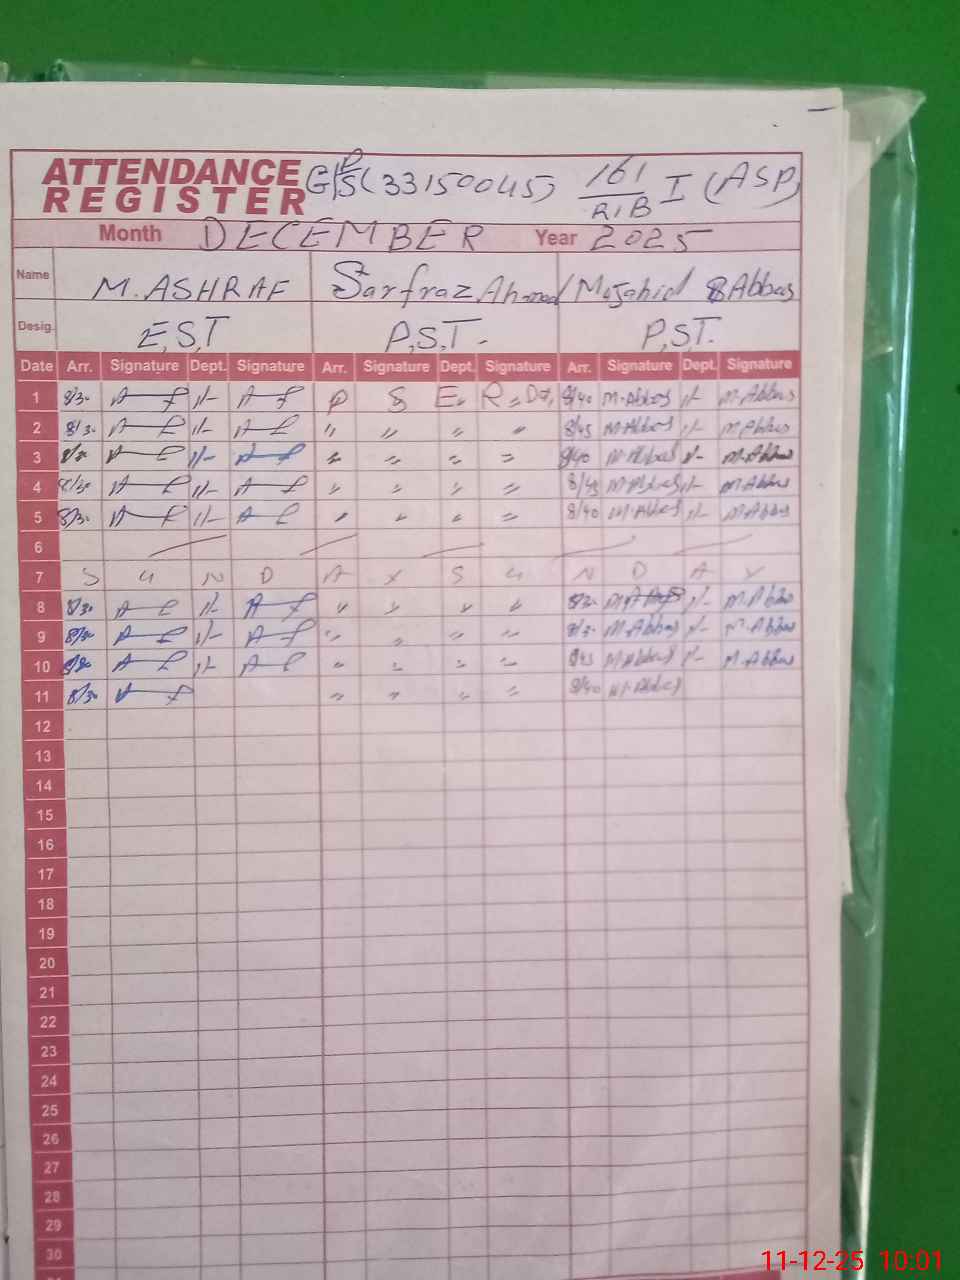 ATTENDANCE
REGISTER
GPS (33150045) 161/R1B I (ASP)
Month DECEMBER Year 2025
Name M. ASHRAF Sarfraz Ahmad Mujahid Abbas
Desig. E,S,T P,S,T. P,ST.
Date Arr. Signature Dept. Signature Arr. Signature Dept. Signature Arr. Signature Dept. Signature
1 8/30 P S E R 8/40 M.Abbas M.Abbas
2 8/30 " " " " 8/45 M.Abbas M.Abbas
3 " " " " 8/40 M.Abbas M.Abbas
4 8/30 " " " " 8/45 M.Abbas M.Abbas
5 8/30 " " " " 8/40 M.Abbas M.Abbas
6
7 S U N D A Y S U N D A Y
8 8/30 " " " " 8/30 M.Abbas
9 8/30 " " " " 8/30 M.Abbas M.Abbas
10 8/30 " " " " 8/45 M.Abbas M.Abbas
11 8/30 " " " " 8/40 M.Abbas
12
13
14
15
16
17
18
19
20
21
22
23
24
25
26
27
28
29
30
11-12-25 10:01